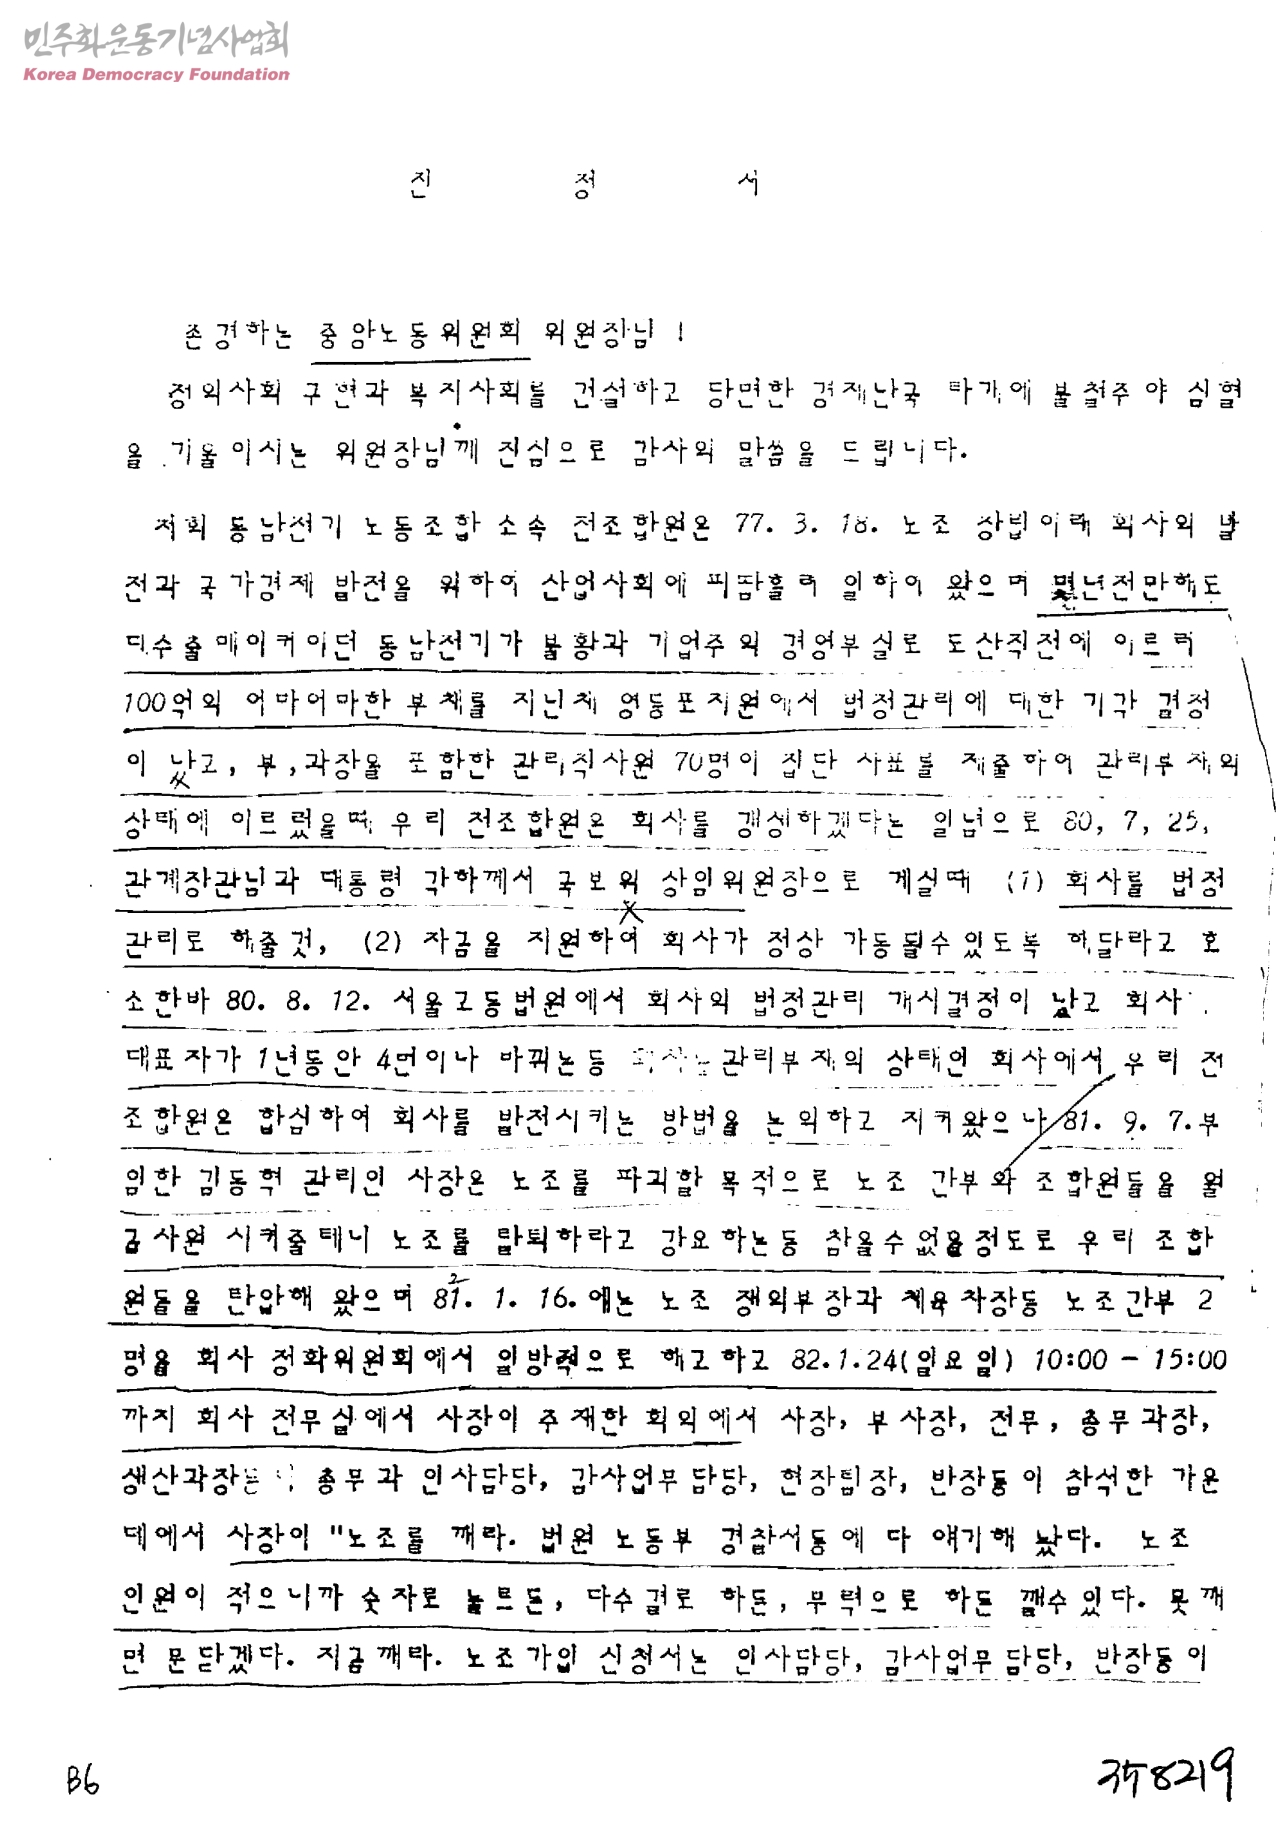 민주화운동기념사업회
Korea Democracy Foundation
진 정 서
존경하는 중앙노동위원회 위원장님 !
정의사회 구현과 복지사회를 건설하고 당면한 경제난국 타개에 불철주야 심혈
을 기울이시는 위원장님께 진심으로 감사의 말씀을 드립니다.
저희 동남전기 노동조합 소속 전조합원은 77. 3. 18. 노조 창립이래 회사의 발
전과 국가경제 발전을 위하여 산업사회에 피땀흘려 일하여 왔으며 몇년전만해도
대수출메이커이던 동남전기가 불황과 기업주의 경영부실로 도산직전에 이르러
100억의 어마어마한 부채를 지닌채 영등포지원에서 법정관리에 대한 기각 결정
이 났고, 부,과장을 포함한 관리직사원 70명이 집단 사표를 제출하여 관리부재의
상태에 이르렀을때 우리 전조합원은 회사를 갱생하겠다는 일념으로 80, 7, 25,
관계장관님과 대통령 각하께서 국보위 상임위원장으로 계실때 (1) 회사를 법정
관리로 해줄것, (2) 자금을 지원하여 회사가 정상 가동될수있도록 해달라고 호
소한바 80. 8. 12. 서울고등법원에서 회사의 법정관리 개시결정이 났고 회사
대표자가 1년동안 4번이나 바뀌는등 관리부재의 상태인 회사에서 우리 전
조합원은 합심하여 회사를 발전시키는 방법을 논의하고 지켜왔으나 81. 9. 7.부
임한 김동혁 관리인 사장은 노조를 파괴할 목적으로 노조 간부와 조합원들을 월
급사원 시켜줄테니 노조를 탈퇴하라고 강요하는등 참을수없을정도로 우리 조합
원들을 탄압해 왔으며 81. 1. 16.에는 노조 쟁의부장과 체육차장등 노조간부 2
2
명을 회사 정화위원회에서 일방적으로 해고하고 82.1.24(일요일) 10:00 - 15:00
까지 회사 전무실에서 사장이 주재한 회의에서 사장, 부사장, 전무, 총무과장,
생산과장 총무과 인사담당, 감사업무담당, 현장팀장, 반장등이 참석한 가운
데에서 사장이 "노조를 깨라. 법원 노동부 경찰서등에 다 얘기해 놨다. 노조
인원이 적으니까 숫자로 눌르든, 다수결로 하든, 무력으로 하든 깰수있다. 못깨
면 문닫겠다. 지금깨라. 노조가입 신청서는 인사담당, 감사업무담당, 반장등이
B6
8219